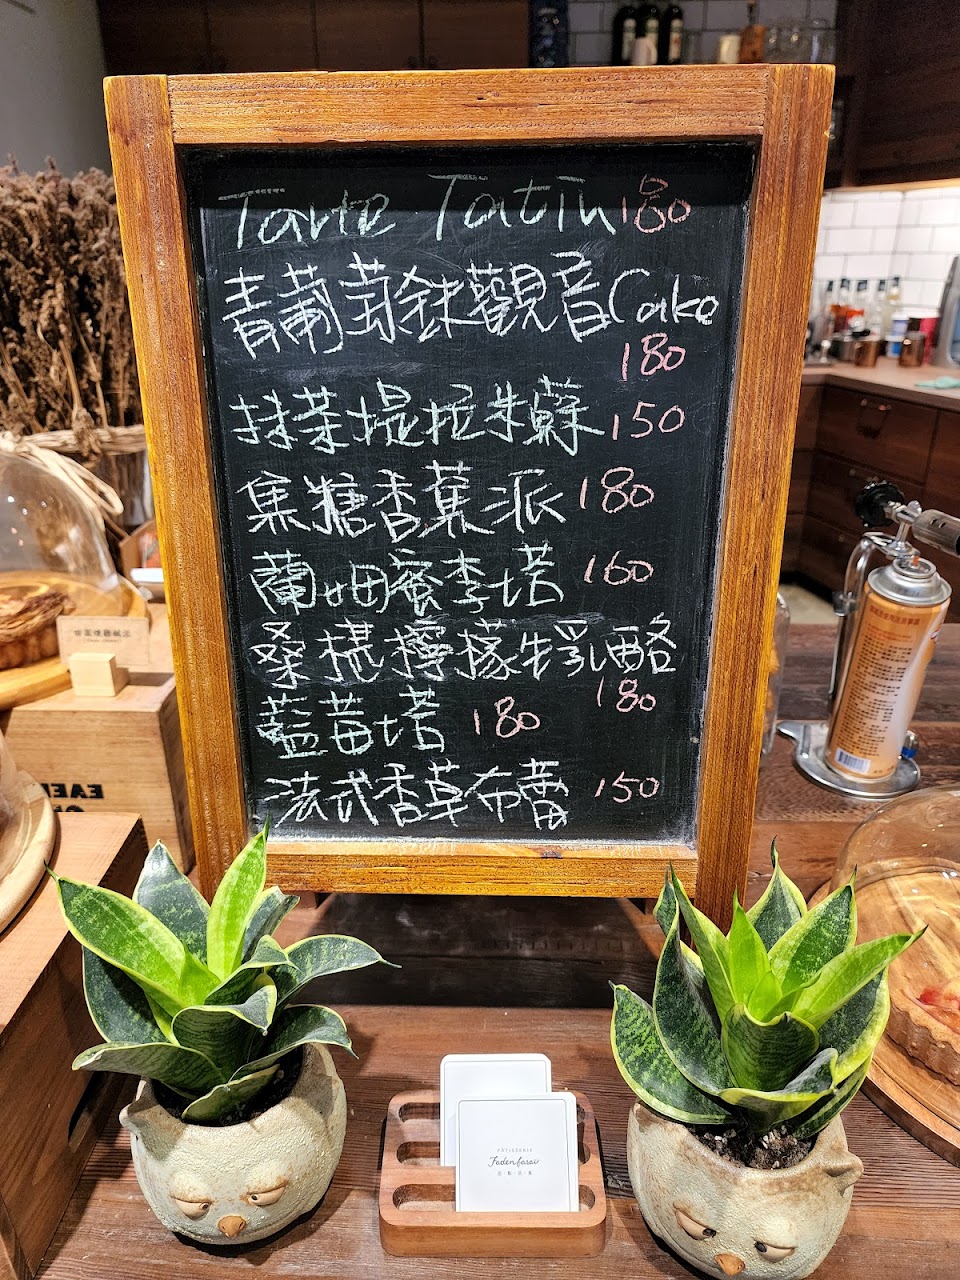 Tarte Tatin 180
青葡萄鉄觀音Cake
180
抹茶提拉米蘇 150
焦糖香蕉派 180
蘭姆蜜李塔 160
桑椹檸檬生乳酪
180
藍莓塔 180
法式香草布蕾 150
PATISSERIE